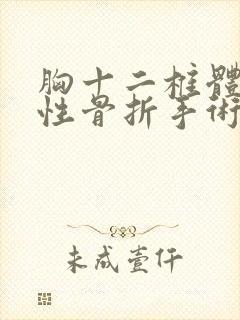 胸十二柱體
性骨折手術
未成壹仟